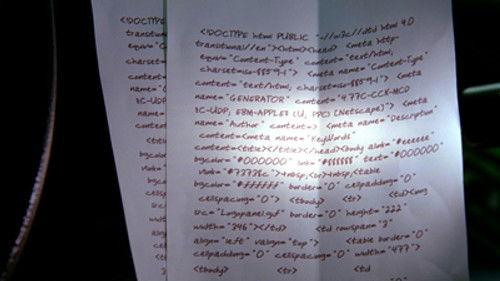 <!DOCTYPE html PUBLIC "-//w3c//dtd html 4.0
transitional//en"><html><head> <meta http-
equiv="Content-Type" content="text/html;
charset=iso-8859-1"> <meta name="Content-Type"
content="text/html; charset=iso-8859-1"> <meta
name="GENERATOR" content="4.77C-CCK-MCD
{C-UDP; EBM-APPLE} (U; PPC) [Netscape]"> <meta
name="Author" content=> <meta name="Description"
content=<meta name="KeyWords"
content=<title></title></head><body alink="#eeeeee"
bgcolor="#000000" link="#ffffff" text="#000000"
vlink="#77778c">&nbsp;<br>&nbsp;<table
bgcolor="#ffffff" border="0" cellpadding="0"
cellspacing="0"> <tbody> <tr> <td><img
src="Logopanel.gif" border="0" height="222"
width="346"></td> <td rowspan="3"
align="left" valign="top"> <table border="0"
cellpadding="0" cellspacing="0" width="477">
<tbody> <tr> <td